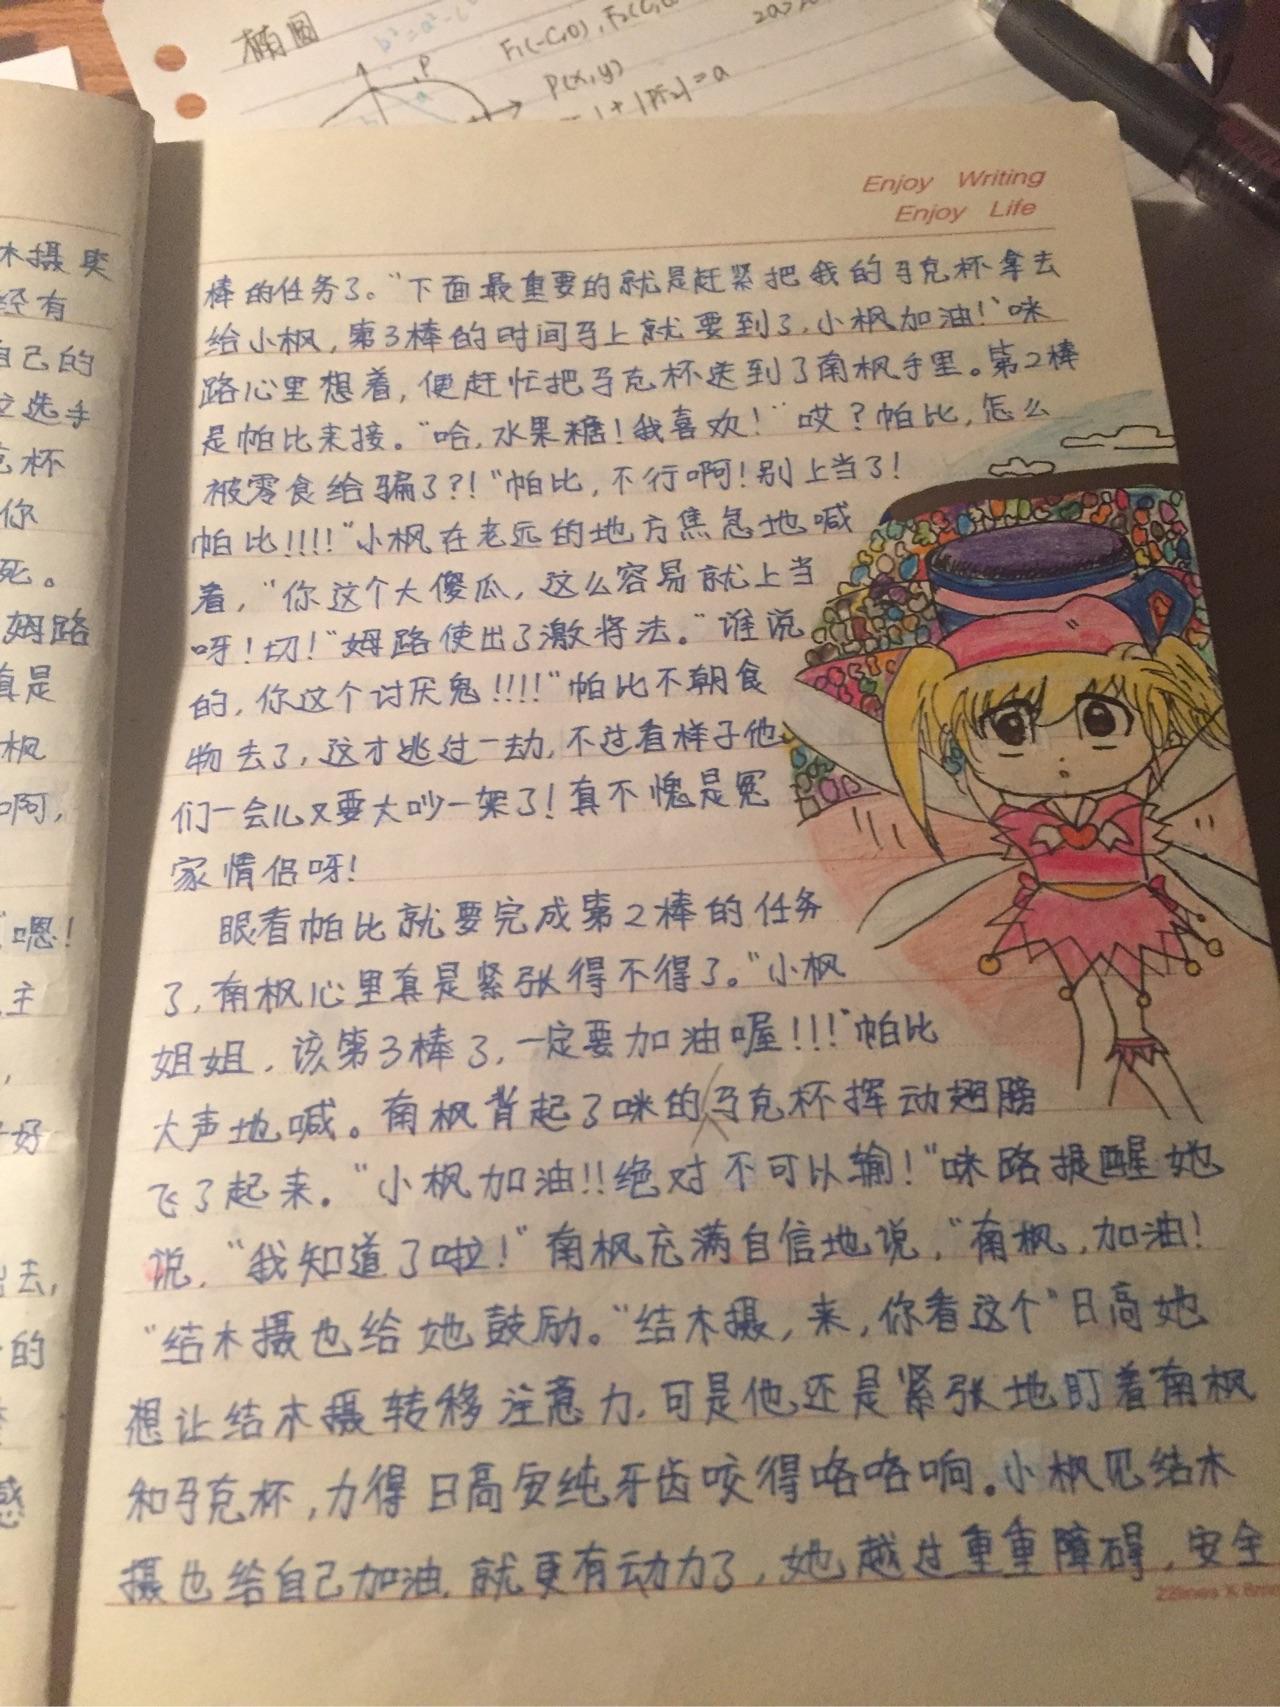 椭圆
b²=a²-c²
P
a
b
F₁(-C,0), F₂(C,0
2a>2
P(x,y)
|+|PF₂|=a
Enjoy Writing
Enjoy Life
木摄
经有
自己的
选手
杯
你
死。
姆路
真是
枫
啊,
嗯!
主
好
去,
的
棒的任务了。“下面最重要的就是赶紧把我的马克杯拿去
给小枫,第3棒的时间马上就要到了,小枫加油!”咪
路心里想着,便赶忙把马克杯送到了南枫手里。第2棒
是帕比来接。“哈,水果糖!我喜欢!”哎?帕比,怎么
被零食给骗了?!“帕比,不行啊!别上当了!
帕比!!!!”小枫在老远的地方焦急地喊
着,“你这个大傻瓜,这么容易就上当
呀!切!”姆路使出了激将法。“谁说
的,你这个讨厌鬼!!!!”帕比不朝食
物去了,这才逃过一劫,不过看样子他
们一会儿又要大吵一架了!真不愧是冤
家情侣呀!
眼看帕比就要完成第2棒的任务
了,南枫心里真是紧张得不得了。“小枫
姐姐,该第3棒了,一定要加油喔!!!”帕比
大声地喊。南枫背起了咪的马克杯挥动翅膀
飞了起来。“小枫加油!!绝对不可以输!”咪路提醒她
说,“我知道了啦!”南枫充满自信地说,“南枫,加油!
“结木摄也给她鼓励。“结木摄,来,你看这个”日高她
想让结木摄转移注意力,可是他还是紧张地盯着南枫
和马克杯,力得日高安纯牙齿咬得咯咯响。小枫见结木
摄也给自己加油,就更有动力了,她越过重重障碍,安全
22lines X 8mm